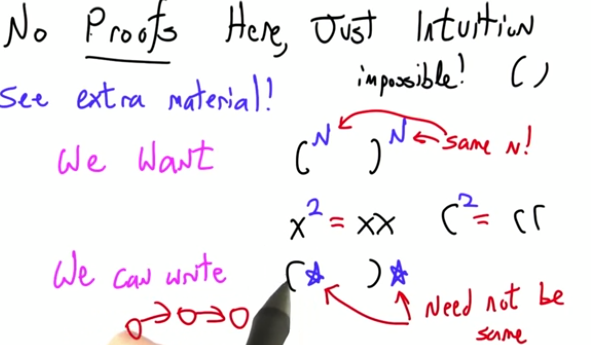 No Proofs Here, Just Intuition
impossible! ( )
See extra material!
We Want (ᴺ )ᴺ same N!
x² = xx (² = ((
We can write (* )* Need not be
same